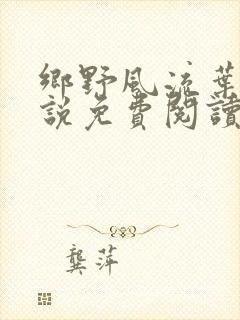 鄉野風流葉
說免費閱讀
龔萍